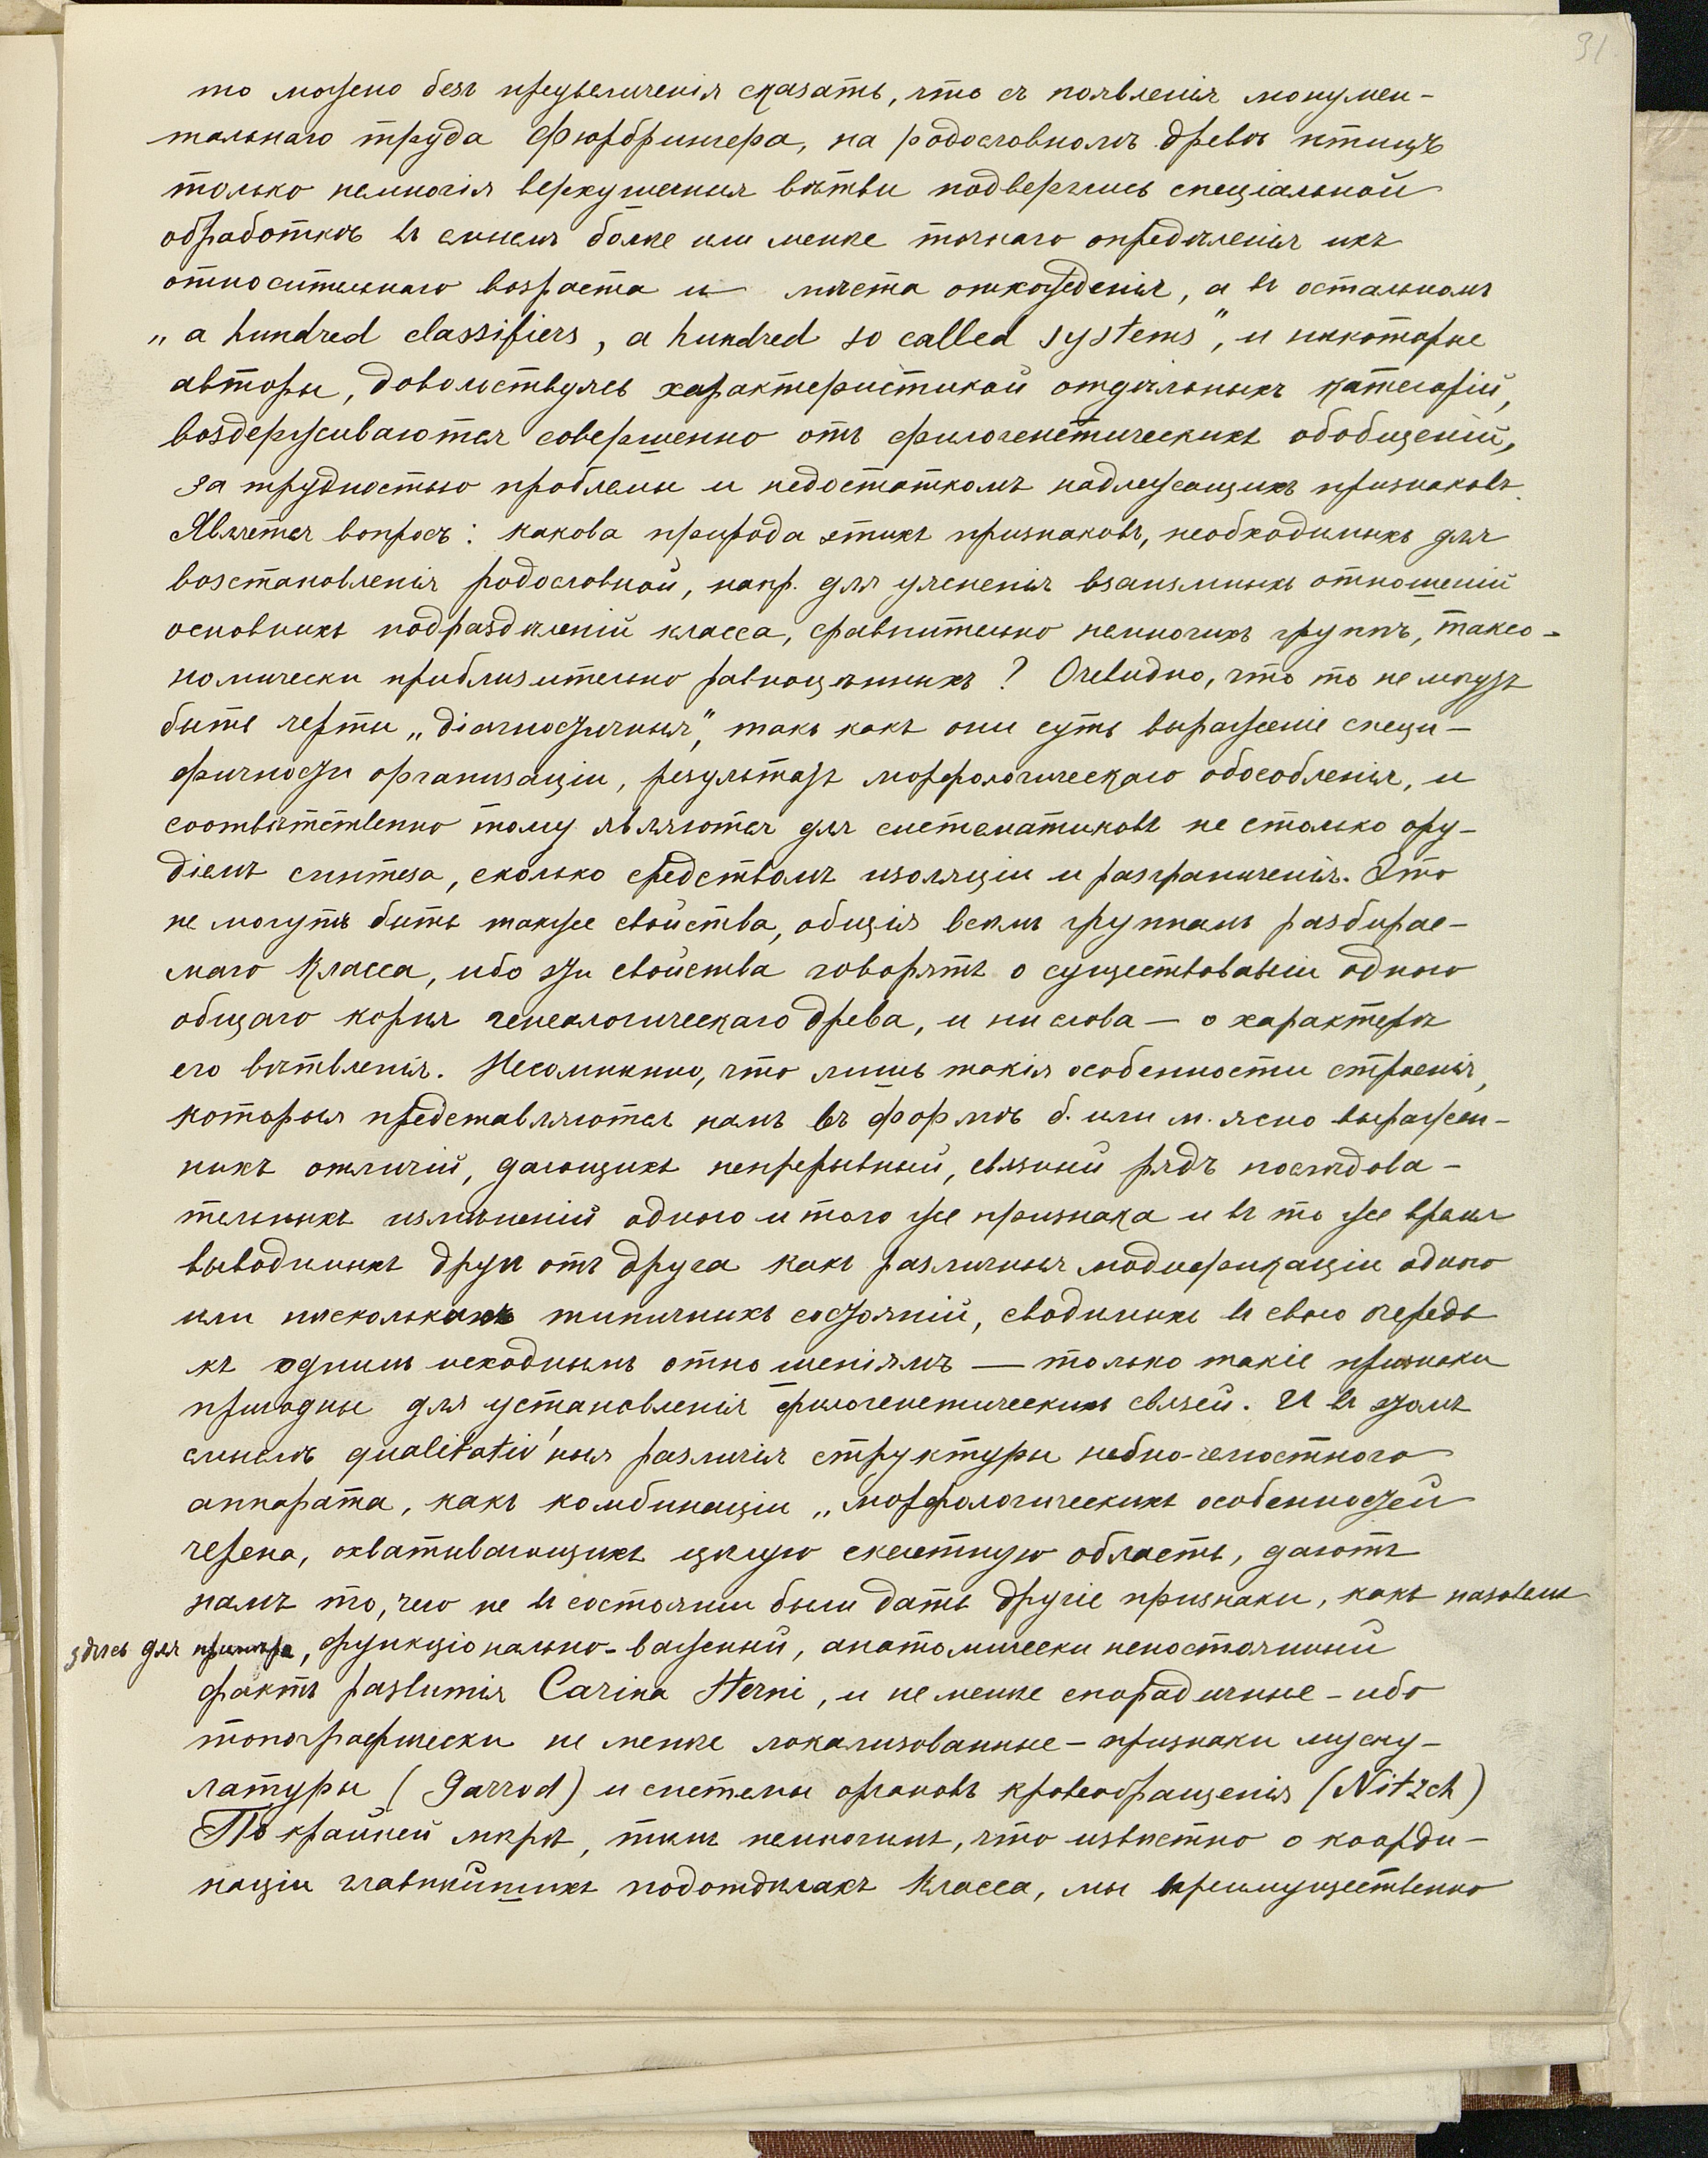 31
то можно безъ преувеличенія сказать, что съ появленія монумен-
тальнаго труда Фюрбрингера, на родословномъ древѣ птицъ
только немногія верхушечныя вѣтви подверглись спеціальной
обработкѣ въ смыслѣ болѣе или менѣе точнаго опредѣленія ихъ
относительнаго возраста и мѣста отхожденія, а въ остальномъ
„a hundred classifiers, a hundred so called systems”, и нѣкоторые
авторы, довольствуясь характеристикой отдѣльныхъ категорій,
воздерживаются совершенно отъ филогенетическихъ обобщеній,
за трудностью проблемы и недостаткомъ надлежащихъ признаковъ.
Является вопросъ: какова природа этихъ признаковъ, необходимыхъ для
возстановленія родословной, напр. для уясненія взаимныхъ отношеній
основныхъ подраздѣленій класса, сравнительно немногихъ группъ, таксо-
номически приблизительно равноцѣнныхъ? Очевидно, что то не могутъ
быть черты „діагностичныя”, такъ какъ они суть выраженіе специ-
фичности организаціи, результатъ морфологическаго обособленія, и
соотвѣтственно тому являются для систематиковъ не столько ору-
діемъ синтеза, сколько средствомъ изоляціи и разграниченія. Это
не могутъ быть также свойства, общія всѣмъ группамъ разбирае-
маго класса, ибо эти свойства говорятъ о существованіи одного
общаго корня генеалогическаго древа, и ни слова — о характерѣ
его вѣтвленія. Несомнѣнно, что лишь такія особенности строенія,
которыя представляются намъ въ формѣ б. или м. ясно выражен-
ныхъ отличій, дающихъ непрерывный, связный рядъ послѣдова-
тельныхъ измѣненій одного и того же признака и въ то же время
выводимыхъ другъ отъ друга какъ различныя модификаціи одного
или нѣсколькихъ типичныхъ состояній, сводимыхъ въ свою очередь
къ однимъ исходнымъ отношеніямъ — только такіе признаки
пригодны для установленія филогенетическихъ связей. И въ этомъ
смыслѣ qualitativ'ныя различія структуры небно-челюстного
аппарата, какъ комбинаціи „морфологическихъ особенностей
черепа, охватывающихъ цѣлую скелетную область, даютъ
намъ то, чего не въ состояніи были дать другіе признаки, какъ назовемъ
здѣсь для примѣра, функціонально-важный, анатомически непостоянный
фактъ развитія Carina sterni, и не менѣе спорадичные – ибо
топографически не менѣе локализованные – признаки муску-
латуры (Garrod) и системы органовъ кровеобращенія (Nitzch)
По крайней мѣрѣ, тѣмъ немногимъ, что извѣстно о коорди-
націи главнѣйшихъ подотдѣлахъ класса, мы преимущественно